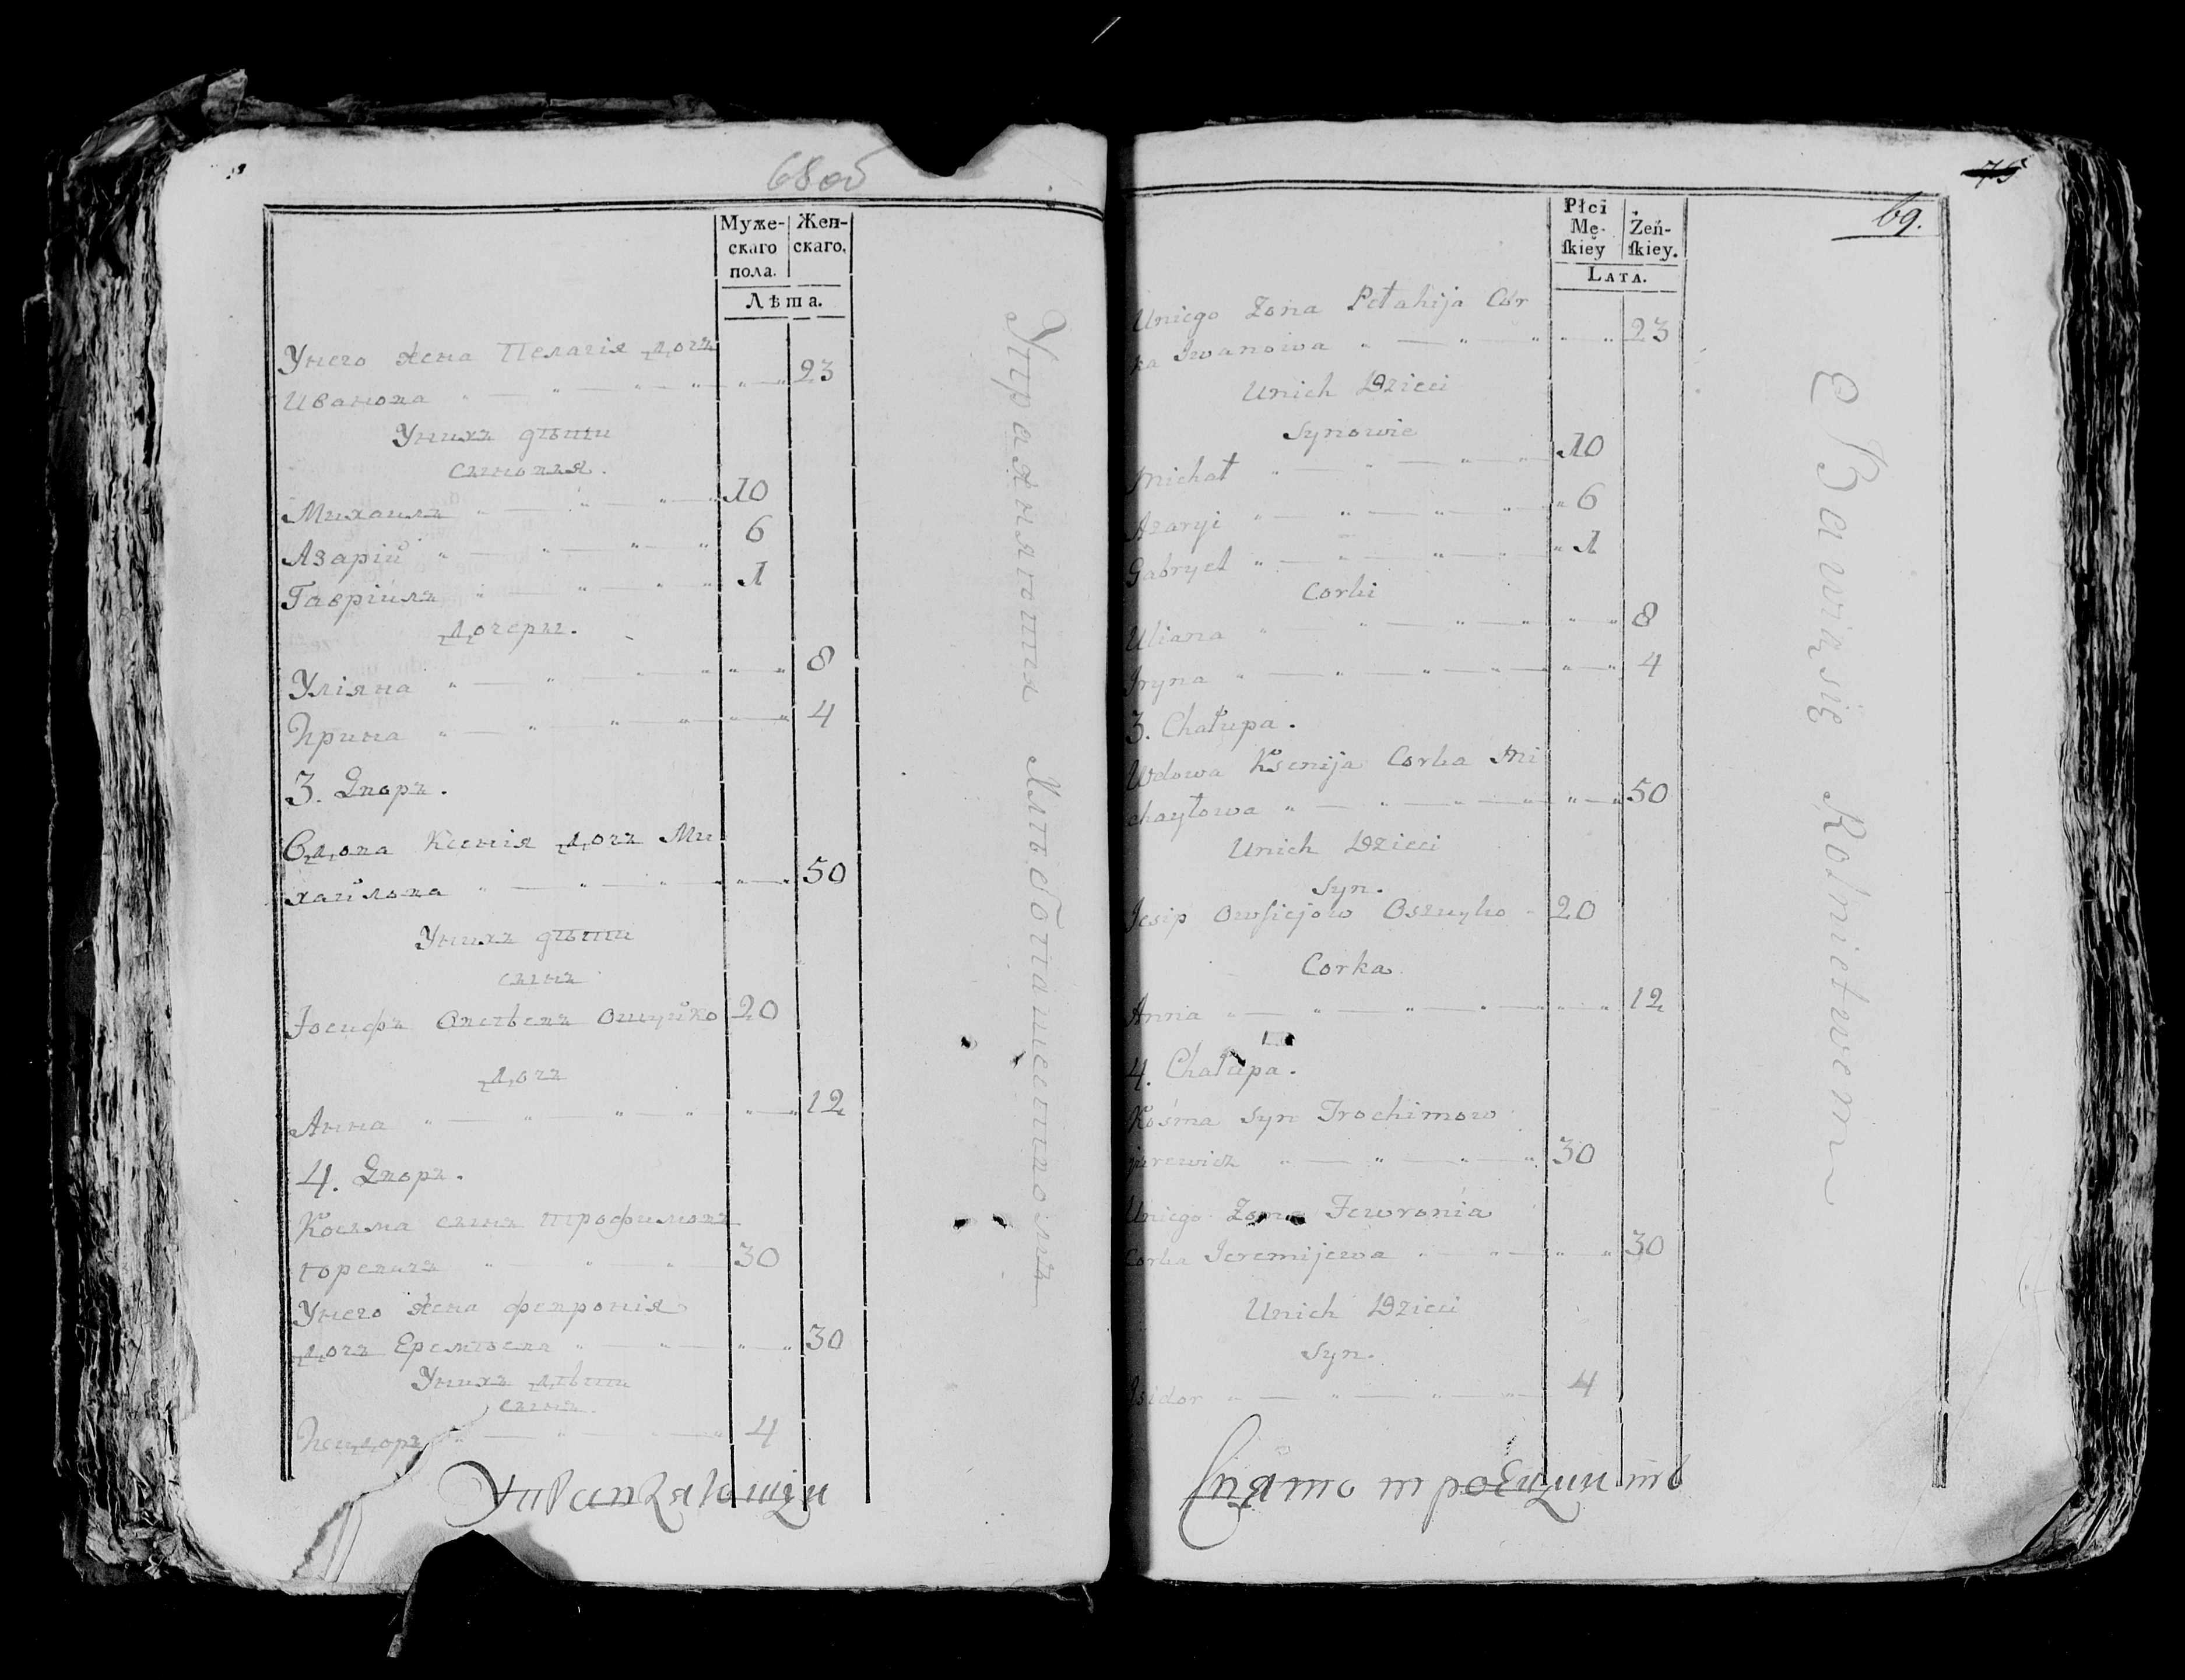 68 об
Муже-
скаго
пола.
Жен-
скаго.
Лѣта.
Унего жена Пелагія дочь
Иванова 23
Унихъ дѣти
сыновья.
Михаилъ 10
Азарій 6
Гавріилъ 1
дочеры.
Уліяна 8
Ирина 4
3. Дворъ.
Вдова Ксенія дочь Ми
хайлова 50
Унихъ дѣти
сынъ
Іосифъ Овсѣевъ Ошуйко 20
дочь
Анна 12
4. Дворъ.
Косма сынъ Трофимовъ
30
Унего жена Февронія
дочь Еремѣева 30
Унихъ дѣти
сынъ.
Исидоръ 4
Упражняются Хлѣбопашествомъ
75
69.
Płci
Mę-
skiey
Żeń-
skiey.
LATA.
Uniego Żona Pełahija Cór
ka Iwanowa 23
Unich Dzieci
Synowie
Michał 10
Azaryi 6
Gabryel 1
Corki
Uliana 8
Iryna 4
3. Chałupa.
Wdowa Ksenija Corka Mi
chayłowa 50
Unich Dzieci
Syn.
Iosip Owsiejow Oszuyko 20
Corka
Anna 12
4. Chałupa.
Kośma Syn Trochimow
30
Uniego Żona Fewronia
Corka Ieremijewa 30
Unich Dzieci
Syn.
Isidor 4
Bawią się Rolnictwem